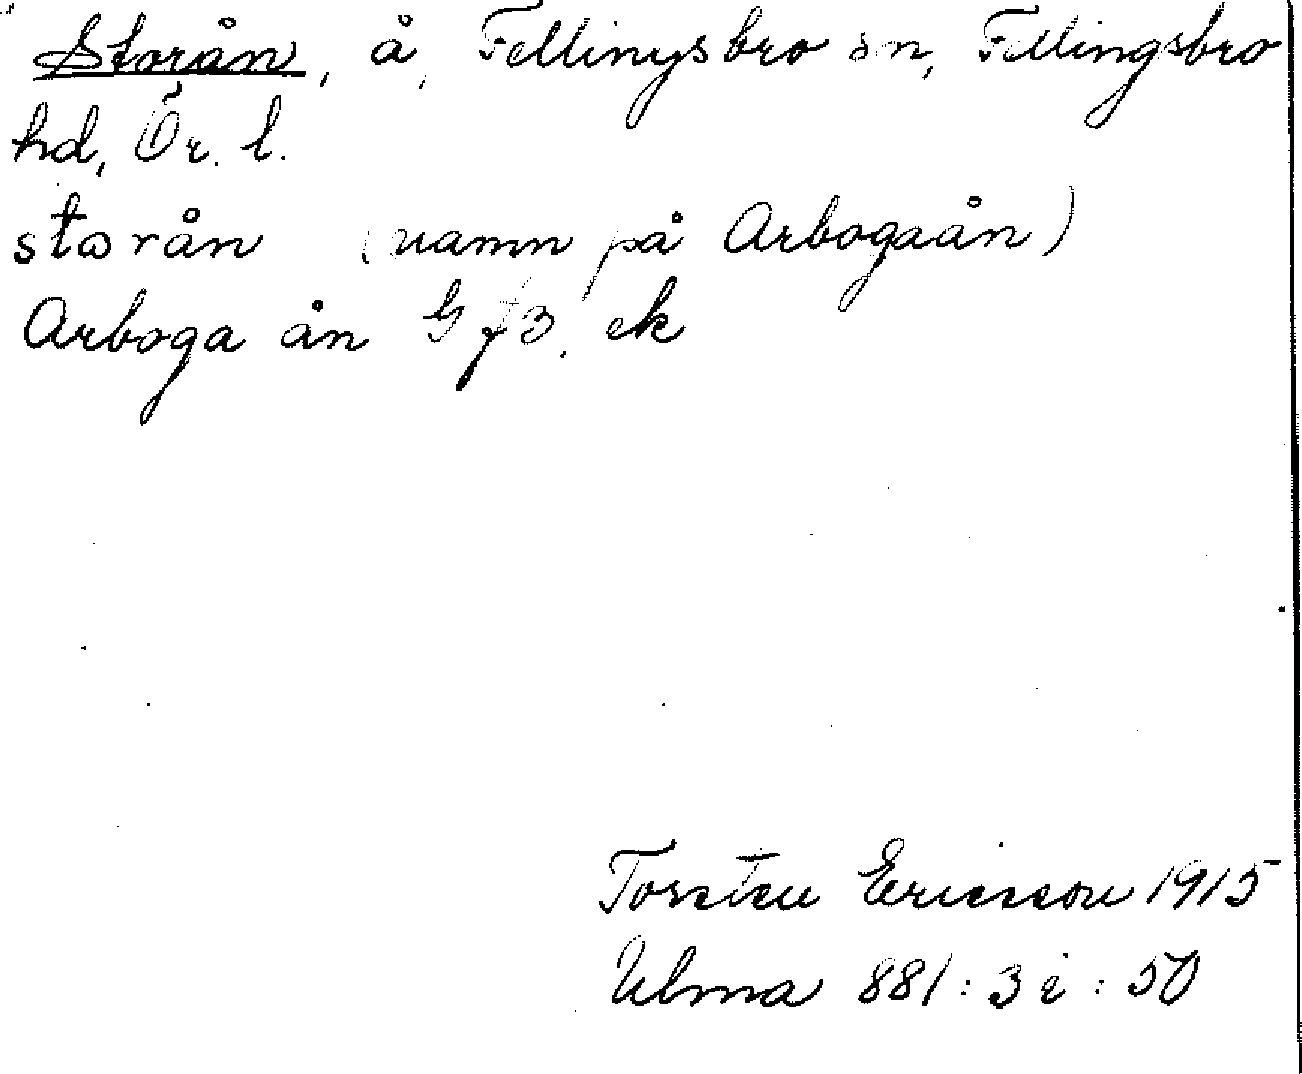 Storån, å, Fellingsbro sn, Fellingsbro
hd, Ör. l.
storån (namn på Arbogaån)
Arboga ån G f 3. ek
Torsten Ericsson 1915
Ulma 881:3 i:50